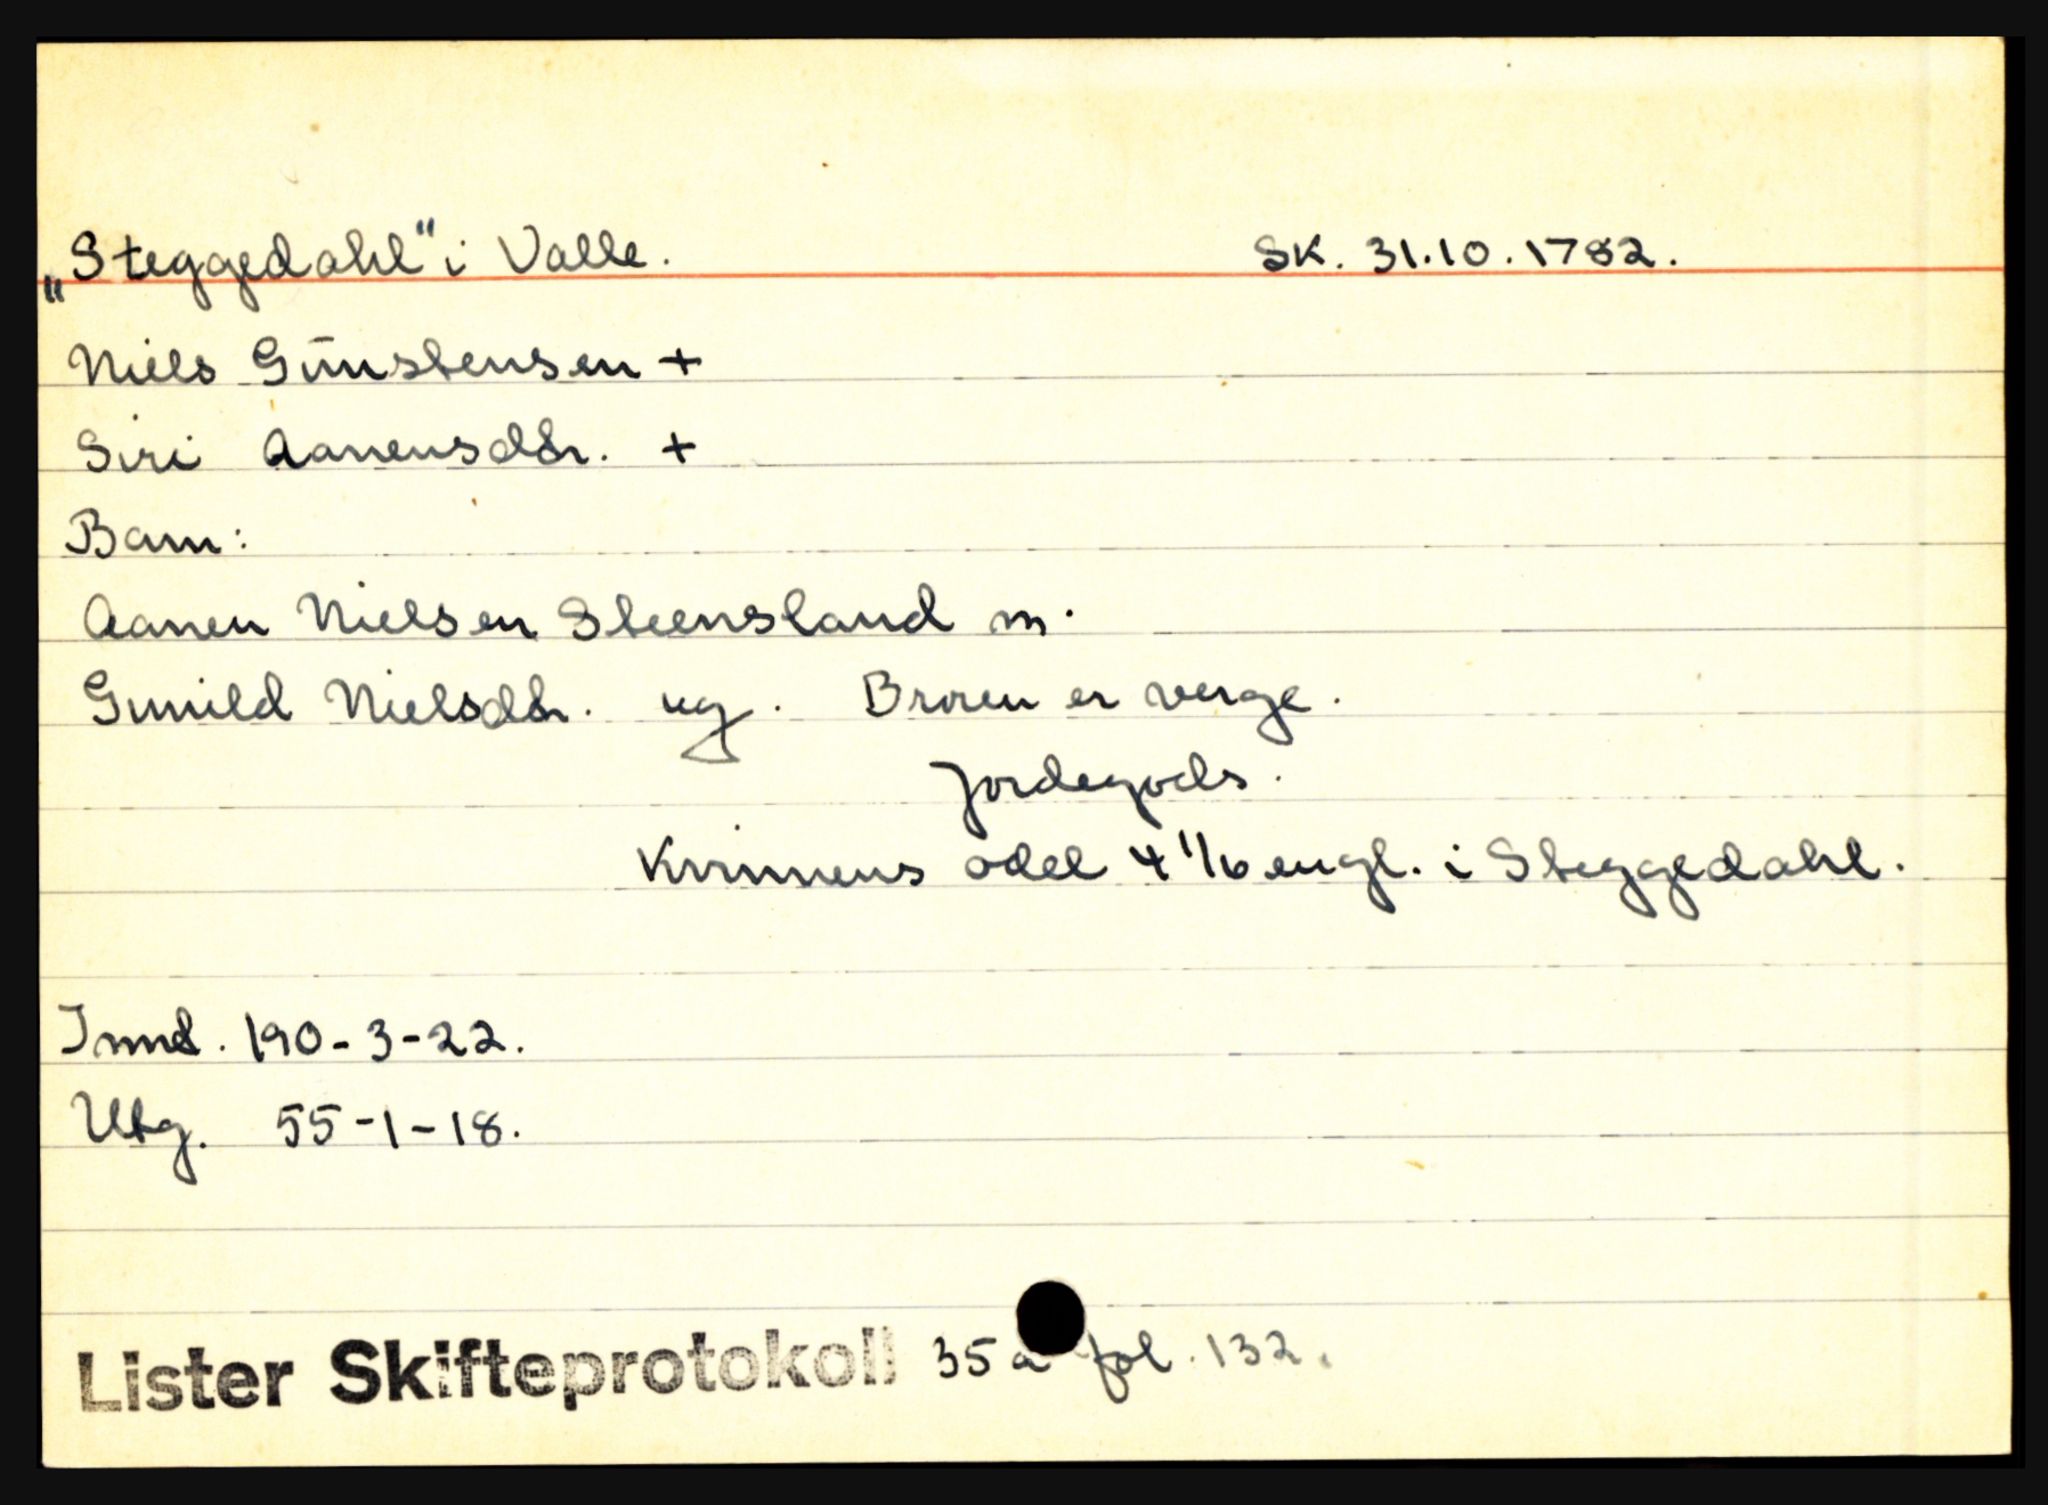 „Steggedahl" i Valle. Sk. 31.10.1782.
Niels Gūnstensen +
Siri Aanensdtr. +
Barn:
Aanen Nielsen Steensland m.
Gunild Nielsdtr. ug. Broren er verge.
Jordegods.
Kvinnens odel 4 1/6 engl. i Steggedahl.
Innt. 190-3-22.
Utg. 55-1-18.
Lister Skifteprotokoll 35 a fol. 132.